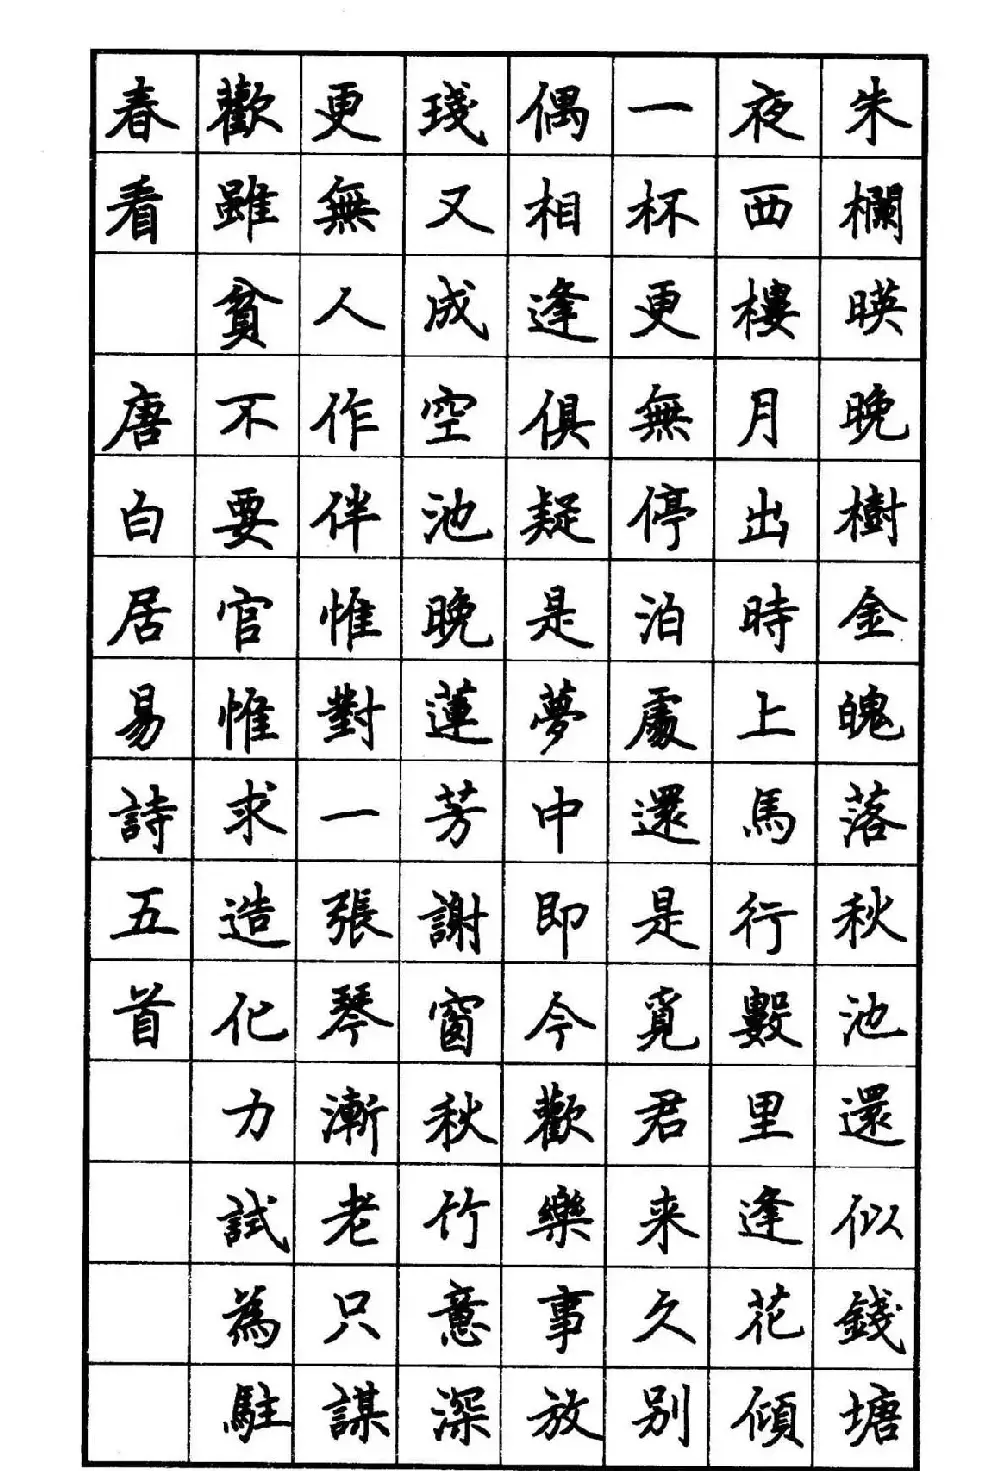 朱欄暎晚樹金魄落秋池還似錢塘
夜西樓月出時上馬行數里逢花傾
一杯更無停泊處還是覓君来久別
偶相逢俱疑是夢中即今歡樂事放
琖又成空池晚蓮芳謝窗秋竹意深
更無人作伴惟對一張琴漸老只謀
歡雖貧不要官惟求造化力試為駐
春看 唐白居易詩五首